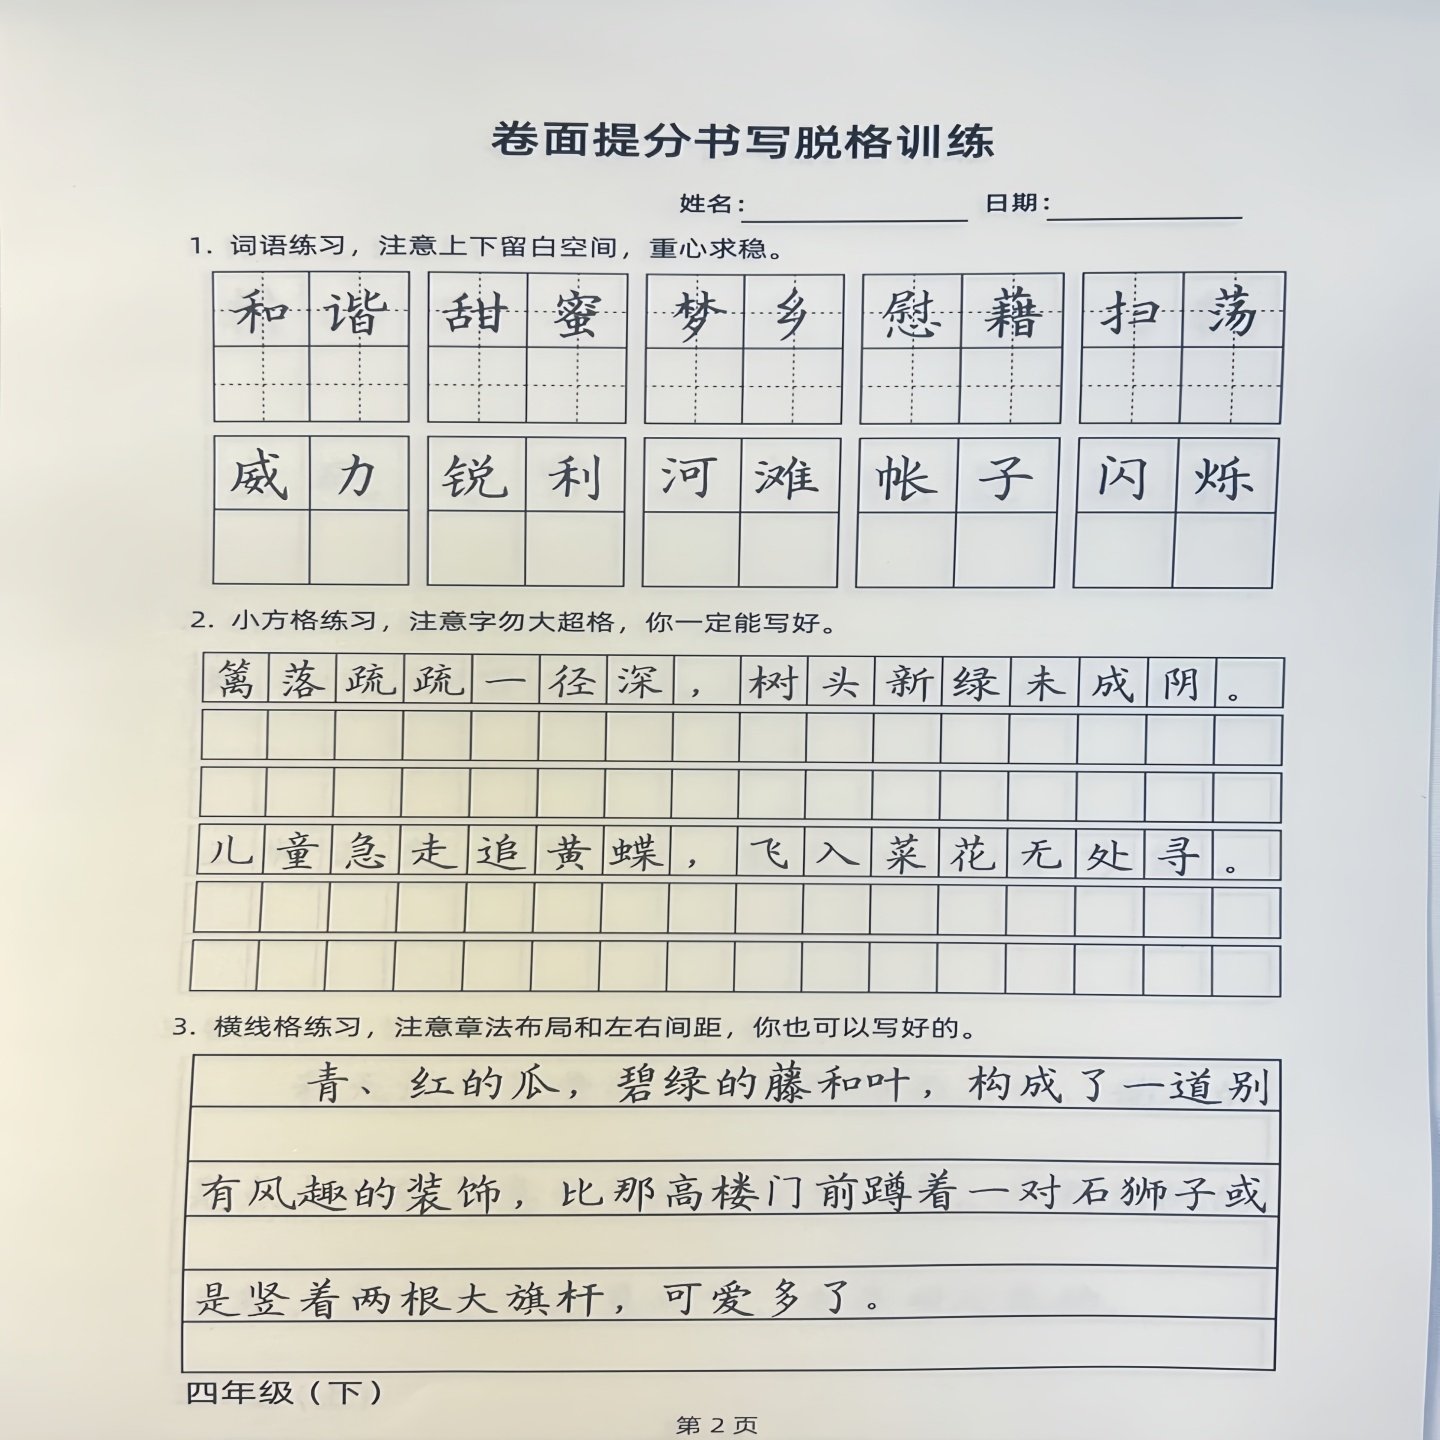 卷面提分书写脱格训练
姓名：
日期：
1. 词语练习，注意上下留白空间，重心求稳。
和谐 甜蜜 梦乡 慰藉 扫荡
威力 锐利 河滩 帐子 闪烁
2. 小方格练习，注意字勿大超格，你一定能写好。
篱落疏疏一径深，树头新绿未成阴。
儿童急走追黄蝶，飞入菜花无处寻。
3. 横线格练习，注意章法布局和左右间距，你也可以写好的。
青、红的瓜，碧绿的藤和叶，构成了一道别
有风趣的装饰，比那高楼门前蹲着一对石狮子或
是竖着两根大旗杆，可爱多了。
四年级（下）
第 2 页